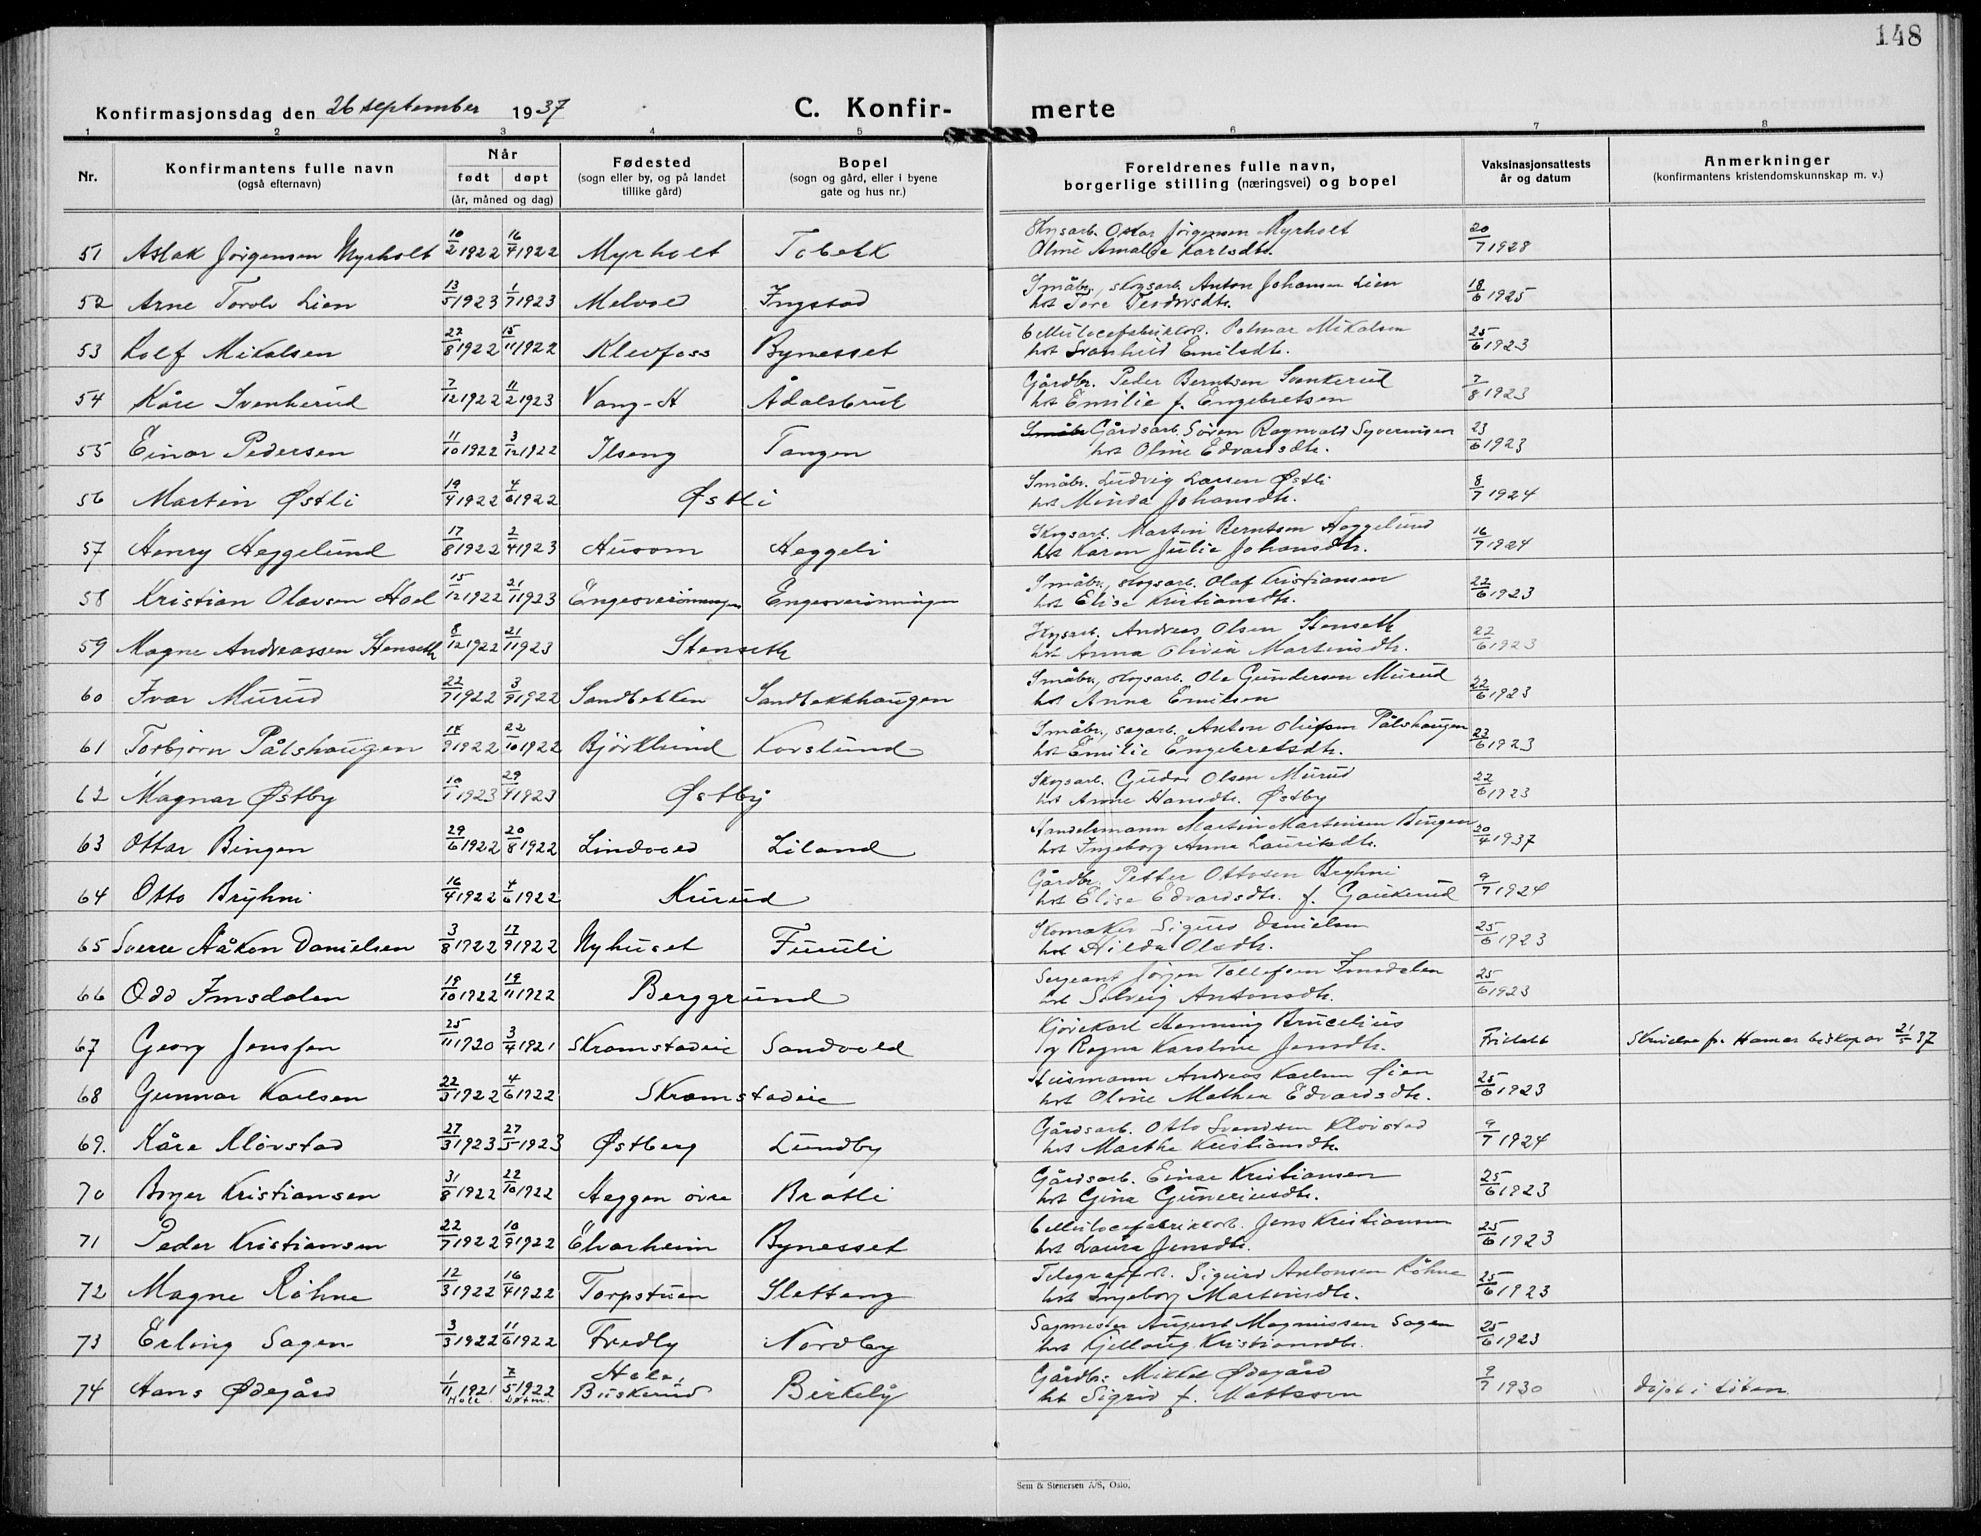 148
Konfirmasjonsdag den 26 september 1937 C. Konfir- merte
1 2 3 4 5 6 7 8
Nr. Konfirmantens fulle navn (også efternavn) Når født døpt (år, måned og dag) Fødested (sogn eller by, og på landet tillike gård) Bopel (sogn og gård, eller i byene gate og hus nr.) Foreldrenes fulle navn, borgerlige stilling (næringsvei) og bopel Vaksinasjonsattests år og datum Anmerkninger (konfirmantens kristendomskunnskap m. v.)
51 Aslak Jørgensen Myrholt 10/2 1922 16/4 1922 Myrholt Tobekk Skogsarb. Oskar Jørgensen Myrholt 20/7 1928
Oline Amalie Karlsdtr.
52 Arne Torolv Lien 13/5 1923 1/7 1923 Melvold Ingstad Småbr., skogsarb. Anton Johansen Lien 18/6 1925
hst Tore
53 Rolf Mikalsen 22/8 1922 15/11 1922 Klevfoss Bynesset Cellulosefabrikkarb. Mikalsen 25/6 1923
hst Svanhild Emilsdtr.
54 Kåre Svenkerud 7/12 1922 11/2 1923 Vang-H Ådalsbruk Gårdbr. Peder Berntsen Svenkerud 7/8 1923
hst Emilie f. Engebretsen
55 Einar Pedersen 11/10 1922 3/12 1922 Ilseng Tangen Småbr Gårdsarb. Søren Ragnvald Syvertsen 23/6 1923
hst Oline Edvardsdtr.
56 Martin Østli 19/4 1922 4/6 1922 Østli Småbr. Ludvig Larsen Østli 8/7 1924
hst Minda Johansdtr.
57 Henry Heggelund 17/8 1922 2/4 1923 Husom Heggeli Skogsarb. Martin Berntsen Heggelund 16/7 1924
hst Karen Julie Johansdtr.
58 Kristian Olavsen Hoel 15/12 1922 21/1 1923 Engesverømningen Engesverømningen Småbr., skogsarb. Olaf Kristiansen 22/6 1923
hst Elise Kristiansdtr.
59 Magne Andreassen Stenseth 8/12 1922 21/1 1923 Stenseth Skogsarb. Andreas Olsen Stenseth 22/6 1923
hst Anna Olivia Martinsdtr.
60 Ivar Murud 22/7 1922 3/9 1922 Sandbekken Sandbekkhaugen Småbr., skogsarb. Ole Gundersen Murud 22/6 1923
hst Anna Emilsen
61 Torbjørn Pålshaugen 14/9 1922 22/10 1922 Bjørklund Korslund Småbr., sagarb. Anton Olufsen Pålshaugen 22/6 1923
hst Emilie Engebretsdtr.
62 Magnar Østby 10/1 1923 29/4 1923 Østby Skogsarb. Gudor Olsen Murud 22/6 1923
hst Anne Hansdtr. Østby
63 Ottar Bingen 29/6 1922 20/8 1922 Lindvold Liland Handelsmann Martin Martinsen Bingen 20/4 1937
hst Ingeborg Anna Lauritsdtr.
64 Otto Bryhni 16/4 1922 4/6 1922 Kurud Gårdbr. Petter Ottosen Bryhni 9/7 1924
hst Elise Edvardsdtr. f. Gaukerud
65 Sverre Håkon Danielsen 3/8 1922 17/9 1922 Nyhuset Furuli Skomaker Sigurd Danielsen 25/6 1923
hst Hilda Olsdtr.
66 Odd Imsdalen 19/10 1922 19/11 1922 Berggrund Sergeant Jørgen Tollefsen Imsdalen 25/6 1923
hst Solveig Antonsdtr.
67 Georg Jenssen 25/11 1920 3/4 1921 Skramstadeie Sandvold Kjørekarl Henning Brucelius Fritatt Skrivelse fr. Hamar biskop av 21/5 37
og Ragna Karoline Jensdtr.
68 Gunnar Karlsen 22/3 1922 4/6 1922 Skramstadeie Husmann Andreas Karlsen Øien 25/6 1923
hst Oline Mathea Edvardsdtr.
69. Kåre Kløvstad 27/3 1923 27/5 1923 Østberg Lundby Gårdsarb. Otto Svendsen Kløvstad 9/7 1924
hst Marthe Kristiansdtr.
70 Birger Kristiansen 31/8 1922 22/10 1922 Heggen øvre Bråtli Gårdsarb. Einar Kristiansen 25/6 1923
hst Gina Guneriusdtr.
71 Peder Kristiansen 22/7 1922 10/9 1922 Elvarheim Bynesset Cellulosefabrikkarb. Jens Kristiansen 25/6 1923
hst Laura Jensdtr.
72 Magne Røhne 12/3 1922 16/4 1922 Torpstuen Sletteng Telegrafarb. Sigurd Antonsen Røhne 25/6 1923
hst Ingeborg Martinsdtr.
73 Erling Sagen 3/3 1922 11/6 1922 Fredly Nordby Sagmester August Magnussen Sagen 25/6 1923
hst Kjellaug Kristiansdtr.
74 Hans Ødegård 1/11 1921 Hole. 7/5 1922 Løten. Hole, Buskerud Birkely Gårdbr. Mikkel Ødegård 9/7 1930 døpt i Løten.
hst Sigrid f. Mattsson
Sem & Stenersen A/S, Oslo.